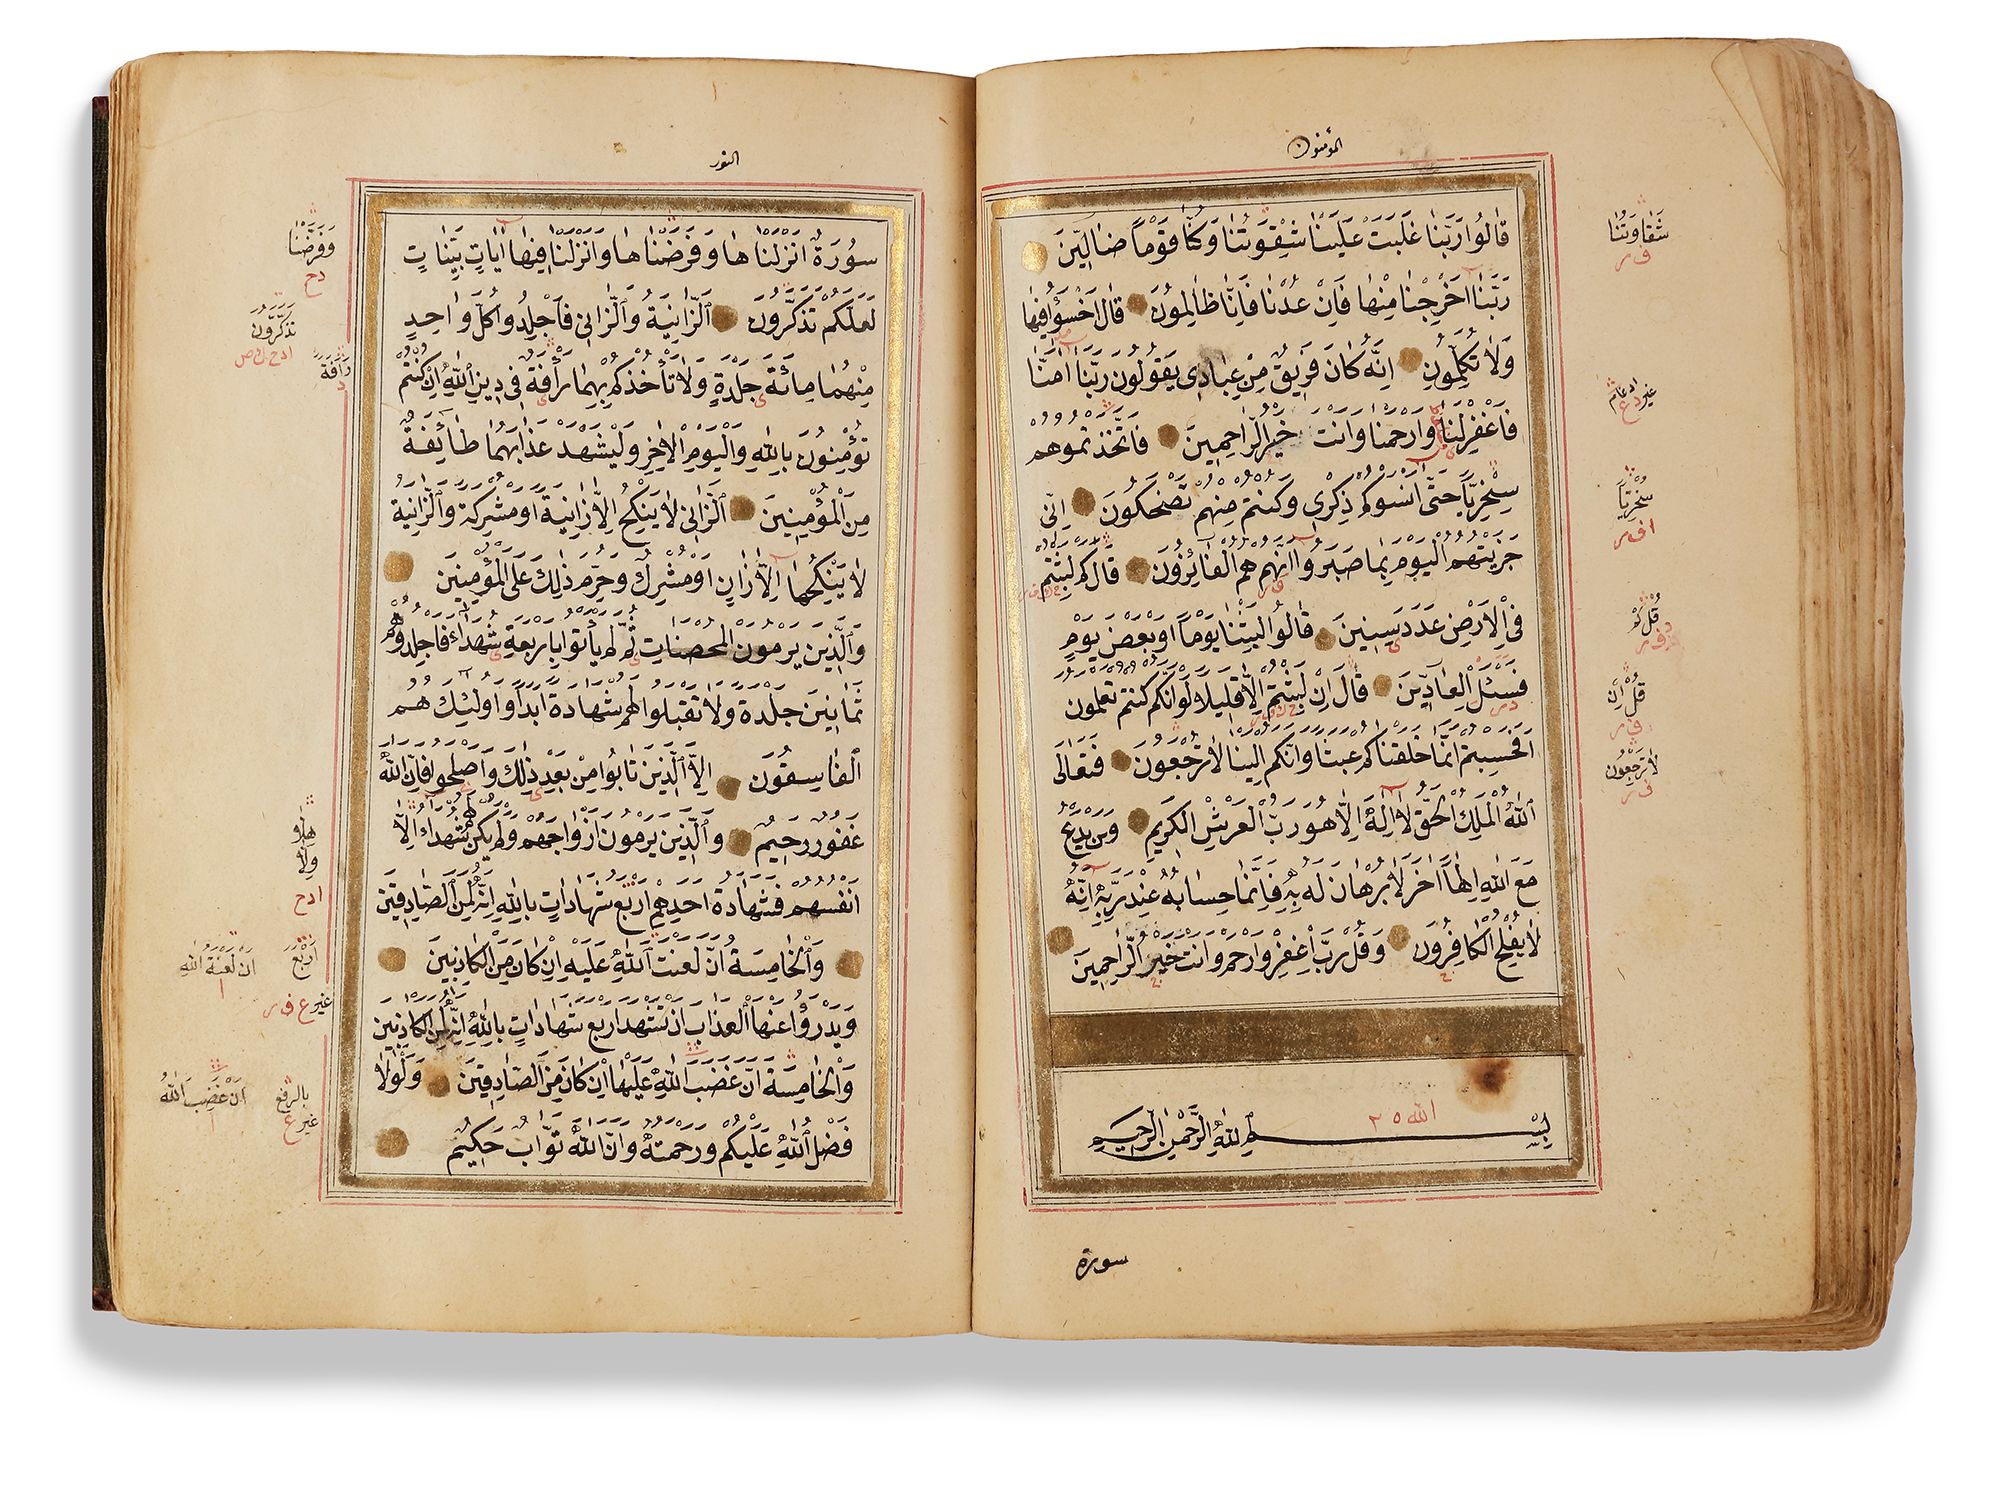 المؤمنون
قالُوا رَبَّنا غَلَبَتْ عَلَيْنا شِقْوَتُنا وَكُنَّا قَوْماً ضالِّينَ
رَبَّنا اَخْرِجْنا مِنْها فَاِنْ عُدْنا فَاِنَّا ظالِمُونَ قالَ اخْسَؤُا فِيها
وَلا تُكَلِّمُونِ اِنَّهُ كانَ فَرِيقٌ مِنْ عِبادِى يَقُولُونَ رَبَّنا اٰمَنَّا
فَاغْفِرْ لَنا وَارْحَمْنا وَاَنْتَ خَيْرُ الرَّاحِمِينَ فَاتَّخَذْتُمُوهُمْ
سِخْرِيّاً حَتّٰى اَنْسَوْكُمْ ذِكْرِى وَكُنْتُمْ مِنْهُمْ تَضْحَكُونَ اِنِّى
جَزَيْتُهُمُ الْيَوْمَ بِما صَبَرُوا اَنَّهُمْ هُمُ الْفائِزُونَ قالَ كَمْ لَبِثْتُمْ
فِى الْاَرْضِ عَدَدَ سِنِينَ قالُوا لَبِثْنا يَوْماً اَوْ بَعْضَ يَوْمٍ
فَسْئَلِ الْعادِّينَ قالَ اِنْ لَبِثْتُمْ اِلَّا قَلِيلاً لَوْ اَنَّكُمْ كُنْتُمْ تَعْلَمُونَ
اَفَحَسِبْتُمْ اَنَّما خَلَقْناكُمْ عَبَثاً وَاَنَّكُمْ اِلَيْنا لا تُرْجَعُونَ فَتَعالَى
اللّٰهُ الْمَلِكُ الْحَقُّ لا اِلٰهَ اِلَّا هُوَ رَبُّ الْعَرْشِ الْكَرِيمِ وَمَنْ يَدْعُ
مَعَ اللّٰهِ اِلٰهاً اٰخَرَ لا بُرْهانَ لَهُ بِهِ فَاِنَّما حِسابُهُ عِنْدَ رَبِّهِ اِنَّهُ
لا يُفْلِحُ الْكافِرُونَ وَقُلْ رَبِّ اغْفِرْ وَارْحَمْ وَاَنْتَ خَيْرُ الرَّاحِمِينَ
بِسْمِ اللّٰهِ الرَّحْمٰنِ الرَّحِيمِ
سورة
شَقاوَتُنا
غير
سُخْرِيّاً
قُلْ كَمْ
قُلْ اِنْ
لا تَرْجِعُونَ
النور
سُورَةٌ اَنْزَلْناها وَفَرَضْناها وَاَنْزَلْنا فِيها اٰياتٍ بَيِّناتٍ
لَعَلَّكُمْ تَذَكَّرُونَ اَلزَّانِيَةُ وَالزَّانِى فَاجْلِدُوا كُلَّ واحِدٍ
مِنْهُما مِائَةَ جَلْدَةٍ وَلا تَأْخُذْكُمْ بِهِما رَأْفَةٌ فِى دِينِ اللّٰهِ اِنْ كُنْتُمْ
تُؤْمِنُونَ بِاللّٰهِ وَالْيَوْمِ الْاٰخِرِ وَلْيَشْهَدْ عَذابَهُما طائِفَةٌ
مِنَ الْمُؤْمِنِينَ اَلزَّانِى لا يَنْكِحُ اِلَّا زانِيَةً اَوْ مُشْرِكَةً وَالزَّانِيَةُ
لا يَنْكِحُها اِلَّا زانٍ اَوْ مُشْرِكٌ وَحُرِّمَ ذٰلِكَ عَلَى الْمُؤْمِنِينَ
وَالَّذِينَ يَرْمُونَ الْمُحْصَناتِ ثُمَّ لَمْ يَأْتُوا بِاَرْبَعَةِ شُهَداءَ فَاجْلِدُوهُمْ
ثَمانِينَ جَلْدَةً وَلا تَقْبَلُوا لَهُمْ شَهادَةً اَبَداً وَاُولٰئِكَ هُمُ
الْفاسِقُونَ اِلَّا الَّذِينَ تابُوا مِنْ بَعْدِ ذٰلِكَ وَاَصْلَحُوا فَاِنَّ اللّٰهَ
غَفُورٌ رَحِيمٌ وَالَّذِينَ يَرْمُونَ اَزْواجَهُمْ وَلَمْ يَكُنْ لَهُمْ شُهَداءُ اِلَّا
اَنْفُسُهُمْ فَشَهادَةُ اَحَدِهِمْ اَرْبَعُ شَهاداتٍ بِاللّٰهِ اِنَّهُ لَمِنَ الصَّادِقِينَ
وَالْخامِسَةُ اَنَّ لَعْنَتَ اللّٰهِ عَلَيْهِ اِنْ كانَ مِنَ الْكاذِبِينَ
وَيَدْرَؤُا عَنْهَا الْعَذابَ اَنْ تَشْهَدَ اَرْبَعَ شَهاداتٍ بِاللّٰهِ اِنَّهُ لَمِنَ الْكاذِبِينَ
وَالْخامِسَةَ اَنَّ غَضَبَ اللّٰهِ عَلَيْها اِنْ كانَ مِنَ الصَّادِقِينَ وَلَوْلا
فَضْلُ اللّٰهِ عَلَيْكُمْ وَرَحْمَتُهُ وَاَنَّ اللّٰهَ تَوَّابٌ حَكِيمٌ
وَفَرَّضْنا
تَذَّكَّرُونَ
رَأَفَةٌ
اَرْبَعَ
اَنْ لَعْنَةُ اللّٰهِ
بالرفع
اَنْ غَضِبَ اللّٰهُ